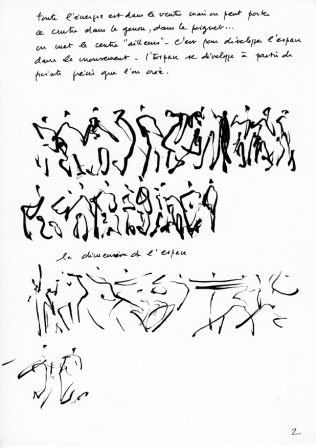 toute l'énergie est dans le ventre mais on peut porter
ce centre dans le genou, dans le poignet...
on met le centre "ailleurs" - c'est pour développer l'espace
dans le mouvement - l'Espace se développe à partir de
points précis que l'on crée.
la dimension de l'espace
2